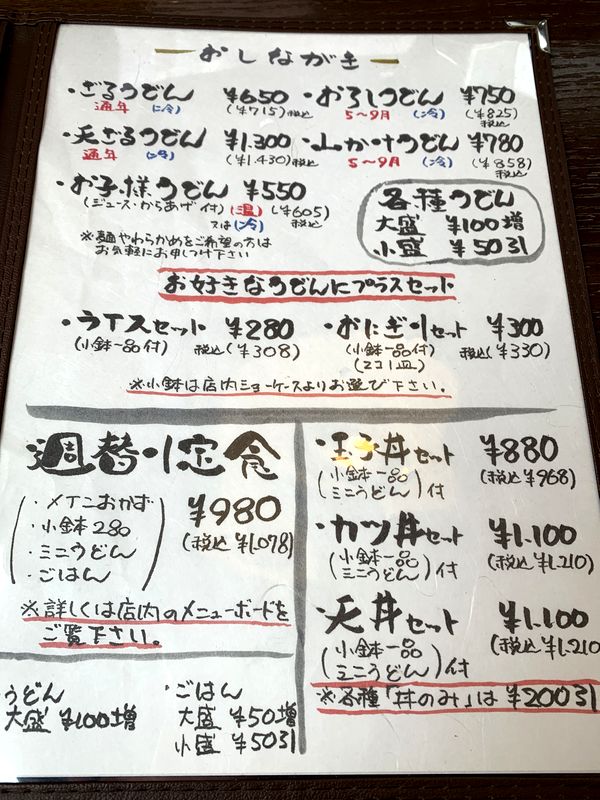 おしながき
・ざるうどん ¥650 ・おろしうどん ¥750
通年 (冷) (¥715)税込 5〜9月 (冷) (¥825)税込
・天ざるうどん ¥1.300 ・山かけうどん ¥780
通年 (冷) (¥1.430)税込 5〜9月 (冷) (¥858)税込
・お子様うどん ¥550
(ジュース・からあげ付) (温)又は(冷) (¥605)税込
※麺やわらかめをご希望の方は
お気軽にお申しつけ下さい
各種うどん
大盛 ¥100増
小盛 ¥50引
お好きなうどんにプラスセット
・ライスセット ¥280 ・おにぎりセット ¥300
(小鉢一品付) 税込(¥308) (小鉢一品付) 税込(¥330)
(2コ1皿)
※小鉢は店内ショーケースよりお選び下さい。
週替り定食
・メインおかず
・小鉢2品
・ミニうどん
・ごはん
¥980
(税込¥1.078)
※詳しくは店内のメニューボードを
ご覧下さい。
うどん
大盛 ¥100増
・ごはん
大盛 ¥50増
小盛 ¥50引
・玉子丼セット ¥880
(小鉢一品 ミニうどん)付 (税込¥968)
・カツ丼セット ¥1.100
(小鉢一品 ミニうどん)付 (税込¥1.210)
・天丼セット ¥1.100
(小鉢一品 ミニうどん)付 (税込¥1.210
※各種「丼のみ」は¥200引